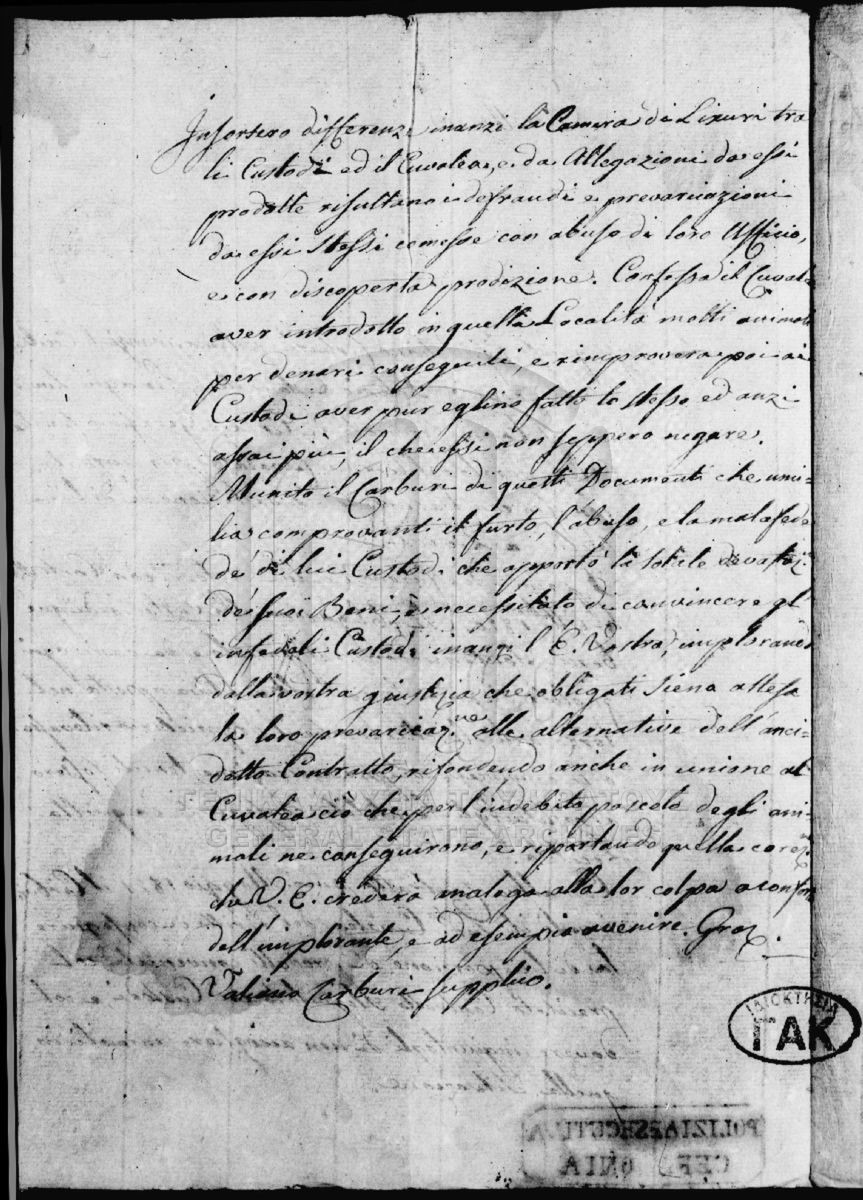 Insortero differenze inanzi la Camera di Lixuri tra
li Custodi ed il Cuvalea, e da Allegazioni da essi
prodotte risultano i defraudi e prevaricazioni
da essi stessi comesse con abuso di loro Ufficio,
e con discoperta prodizione. Confessa il Cuvale
aver introdotto in quella Località molti animali
per denari conseguiti, e rimprovera poi ai
Custodi aver pur eglino fatto lo stesso ed anzi
assai più, il che essi non seppero negare.
Munito il Carburi di questi Documenti che umi-
lia comprovanti il furto, l'abuso, e la malafede
de' di lui Custodi che apportò la totale devastaz.e
de' suoi Beni, è necessitato di convincere gl'
infedeli Custodi inanzi l'E. Vostra, implorando
dalla vostra giustizia che obligati siena attesa
la loro prevaricaz.ne alle alternative dell'anci-
detto Contratto, rifondendo anche in unione al
Cuvalea ciò che per l'indebito pascolo degli ani-
mali ne conseguirono, e riportando quella corez.n
che V. E. crederà analoga alla lor colpa a confor
dell'implorante, e ad esempio avenire. Graz.
Valiano Carburi supplico.
ΙΔΙΟΚΤΗΣΙΑ
ΓΑΚ
GENERAL STATE ARCHIVES
POLIZIA ESECUTIVA
CEF ONIA